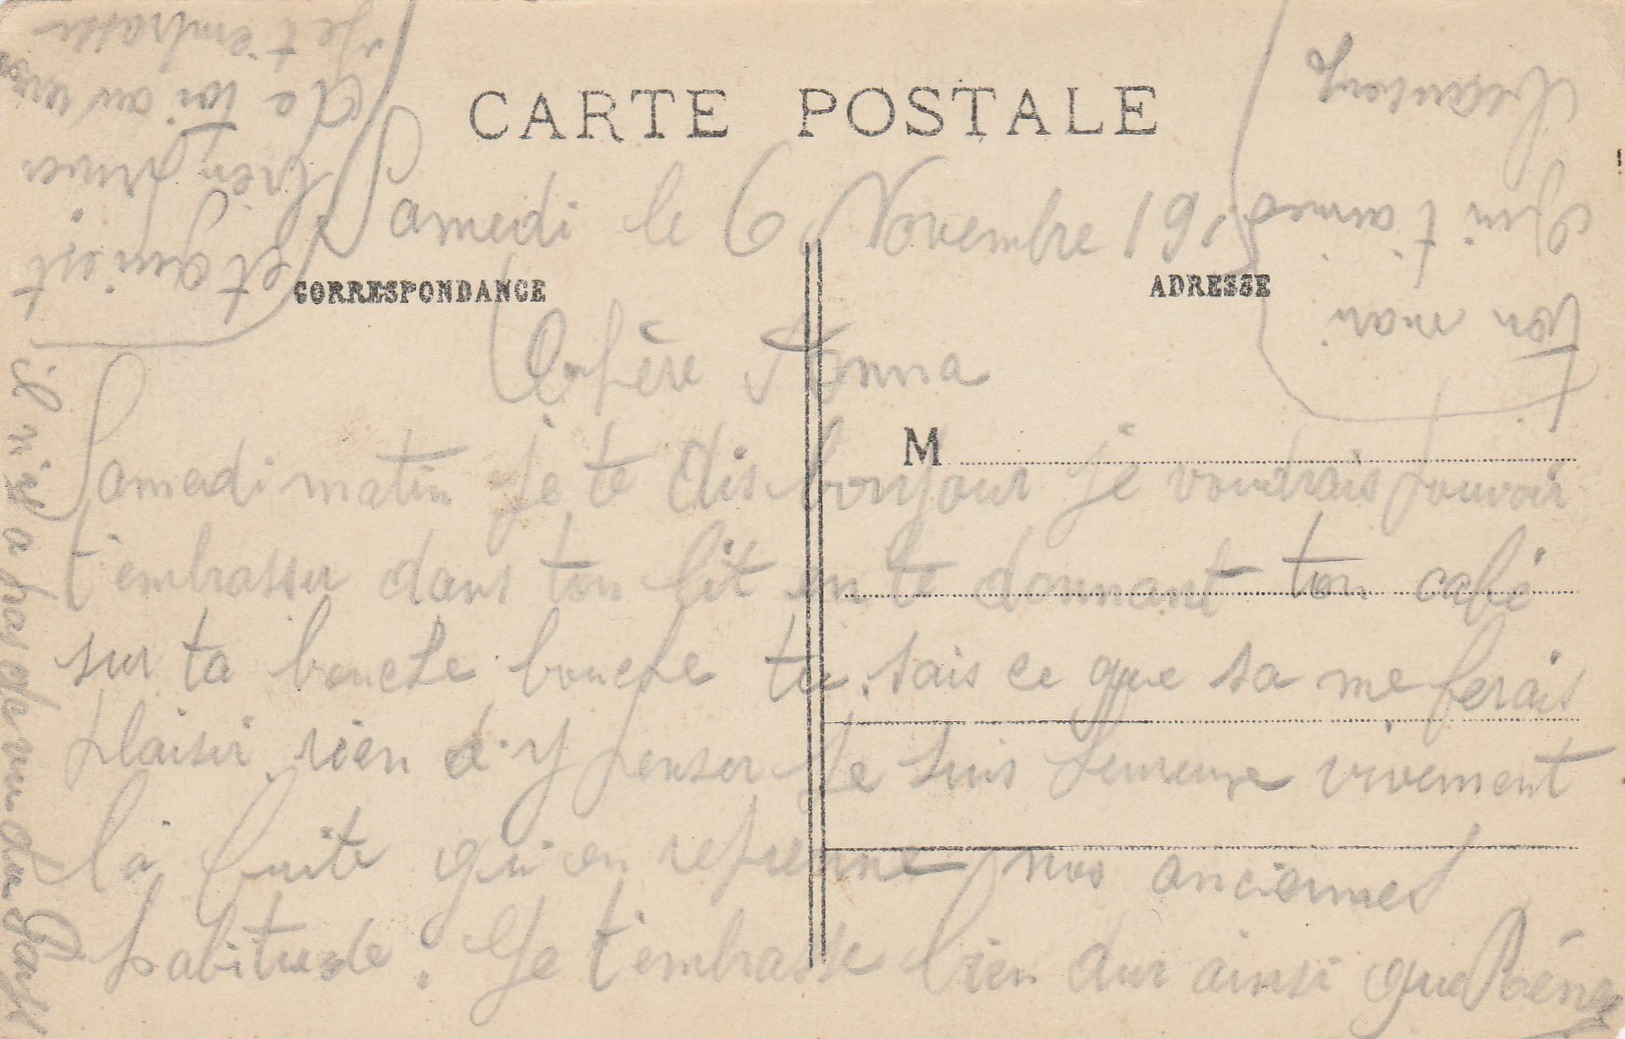 CARTE POSTALE
Samedi le 6 Novembre 191
CORRESPONDANCE
ADRESSE
M
Samedi matin je te dis bonjour je voudrais pouvoir
t'embrasser dans ton lit en te donnant ton café
sur ta bouche bouche tu sais ce que sa me ferais
plaisir rien d'y penser Je suis heureuse vivement
la suite qu'on reprenne nos anciennes
habitude. Je t'embrasse bien dur ainsi que
il n'y a pas de
et qui est
bien
a toi au
Je t'embrasse
ton mari
qui t'aime